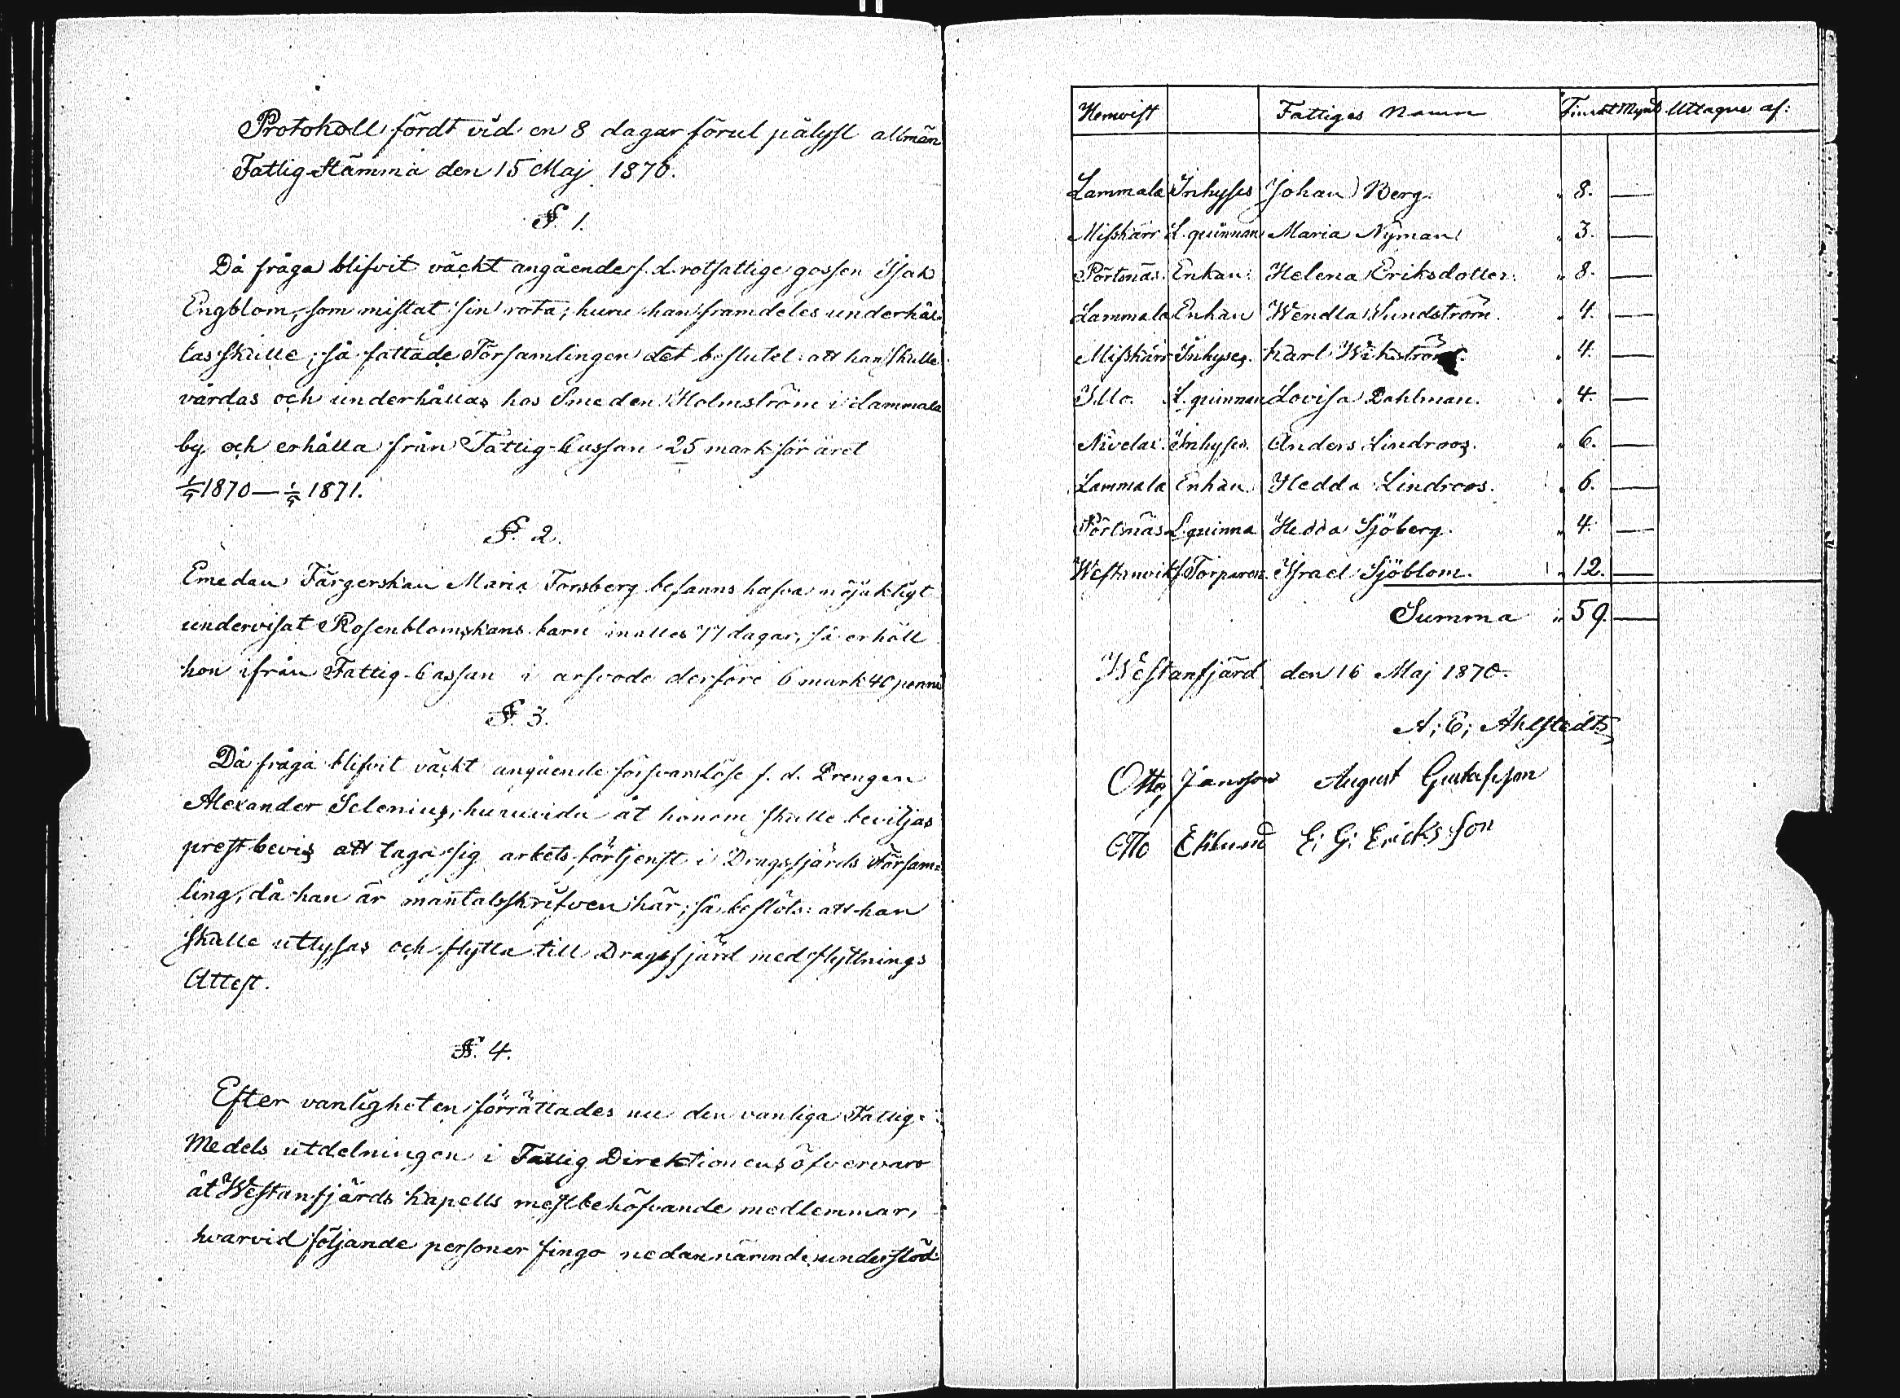 Protokoll fördt vid en 8 dagar förut pålyst allmän
Fattig Stämma den 15 Maj 1870.
§. 1.
Då fråga blifvit väckt angående f. d. rotfattige gossen Isak
Engblom, som mistat sin rota; huru han framdeles underhål-
las skulle; så fattade Församlingen det beslutet: att han skulle
vårdas och underhållas hos Smeden Holmström i Lammala
by och erhålla från Fattig-Cassan 25 mark för året
1/5 1870 — 1/5 1871.
§. 2.
Emedan Färgerskan Maria Forsberg befanns hafva nöjaktigt
undervisat Rosenblomskans barn inalles 77 dagar, så erhöll
hon ifrån Fattig-Cassan i arfvode derföre 6 mark 40 penni
§. 3.
Då fråga blifvit väckt angående försvarslöse f. d. Drengen
Alexander Selenius, huruvida åt honom skulle beviljas
prestbevis att taga sig arbets förtjenst i Dragsfjärds Försam-
ling, då han är mantalsskrifven här; så beslöts: att han
skulle utlysas och flytta till Dragsfjärd med flyttnings
Attest.
§. 4.
Efter vanligheten förrättades nu den vanliga Fattig-
Medels utdelningen i Fattig Direktionens öfvervaro
åt Westanfjärds kapells mestbehöfvande medlemmar,
hvarvid följande personer fingo nedannämnde understöd
Hemvist Fattiges Namn Finskt Mynt Uttagne af:
Lammala Inhyses Johan Berg. " 8. —
Misskärr L. quinnan Maria Nyman " 3. —
Pörtnäs. Enkan Helena Eriksdotter. " 8. —
Lammala Enkan Wendla Sundström. " 4. —
Misskärr Inhyses. Karl Wikström. " 4. —
Illo. L. quinnan Lovisa Dahlman. " 4. —
Nivelax. Inhyses. Anders Lindroos. " 6. —
Lammala Enkan Hedda Lindroos. " 6. —
Pörtnäs L. quinna Hedda Sjöberg. " 4. —
Westanvik f. Torparen. Israel Sjöblom. " 12. —
Summa " 59. —
Westanfjärd den 16 Maj 1870.
A; E; Ahlstedt
Otto Jansson August Gustafsson
Otto Eklund E; G; Ericksson